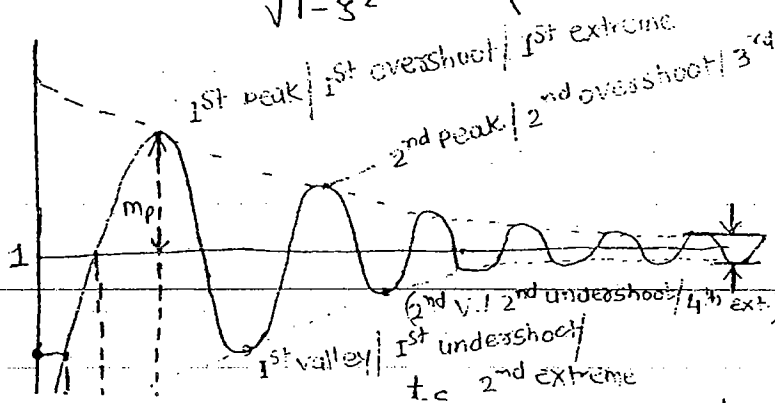 √1-ξ²
1st peak / 1st overshoot / 1st extreme
2nd peak / 2nd overshoot / 3rd
mp
1
(2nd V. / 2nd undershoot / 4th ext.
1st valley / 1st undershoot /
2nd extreme